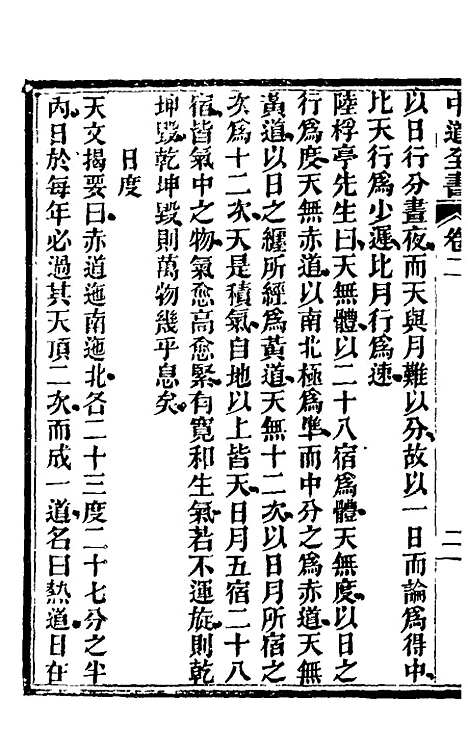 中道全書 卷二
以日行分晝夜而天與月難以分故以一日而論爲得中
比天行爲少遲比月行爲速
陸桴亭先生曰天無體以二十八宿爲體天無度以日之
行爲度天無赤道以南北極爲準而中分之爲赤道天無
黃道以日之纏所經爲黃道天無十二次以日月所宿之
次爲十二次天是積氣自地以上皆天日月五宿二十八
宿皆氣中之物氣愈高愈緊有寬和生氣若不運旋則乾
坤毀乾坤毀則萬物幾乎息矣
日度
天文揭要曰赤道迤南迤北各二十三度二十七分之半
內日於每年必過其天頂二次而成一道名曰熱道日在